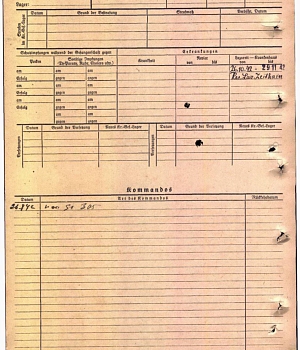 Lager:
Datum Grund der Bestrafung Strafmaß Verbüßt, Datum
Schutzimpfungen während der Gefangenschaft gegen
Erkrankungen
Pocken Sonstige Impfungen Krankheit Revier Lazarett — Krankenhaus
(Ty-Paratyph., Ruhr, Cholera usw.)
von — bis von — bis
am am 26.10.42 - 29.11.42
Erfolg gegen Res. Laz. Zeithain
am am
Erfolg gegen
am am
Erfolg gegen
am am
gegen
am
gegen
Datum Grund der Versetzung Neues Kr.-Gef.-Lager Datum Grund der Versetzung Neues Kr.-Gef.-Lager
Kommandos
Datum Art des Kommandos Rückkehrdatum
24.8.42